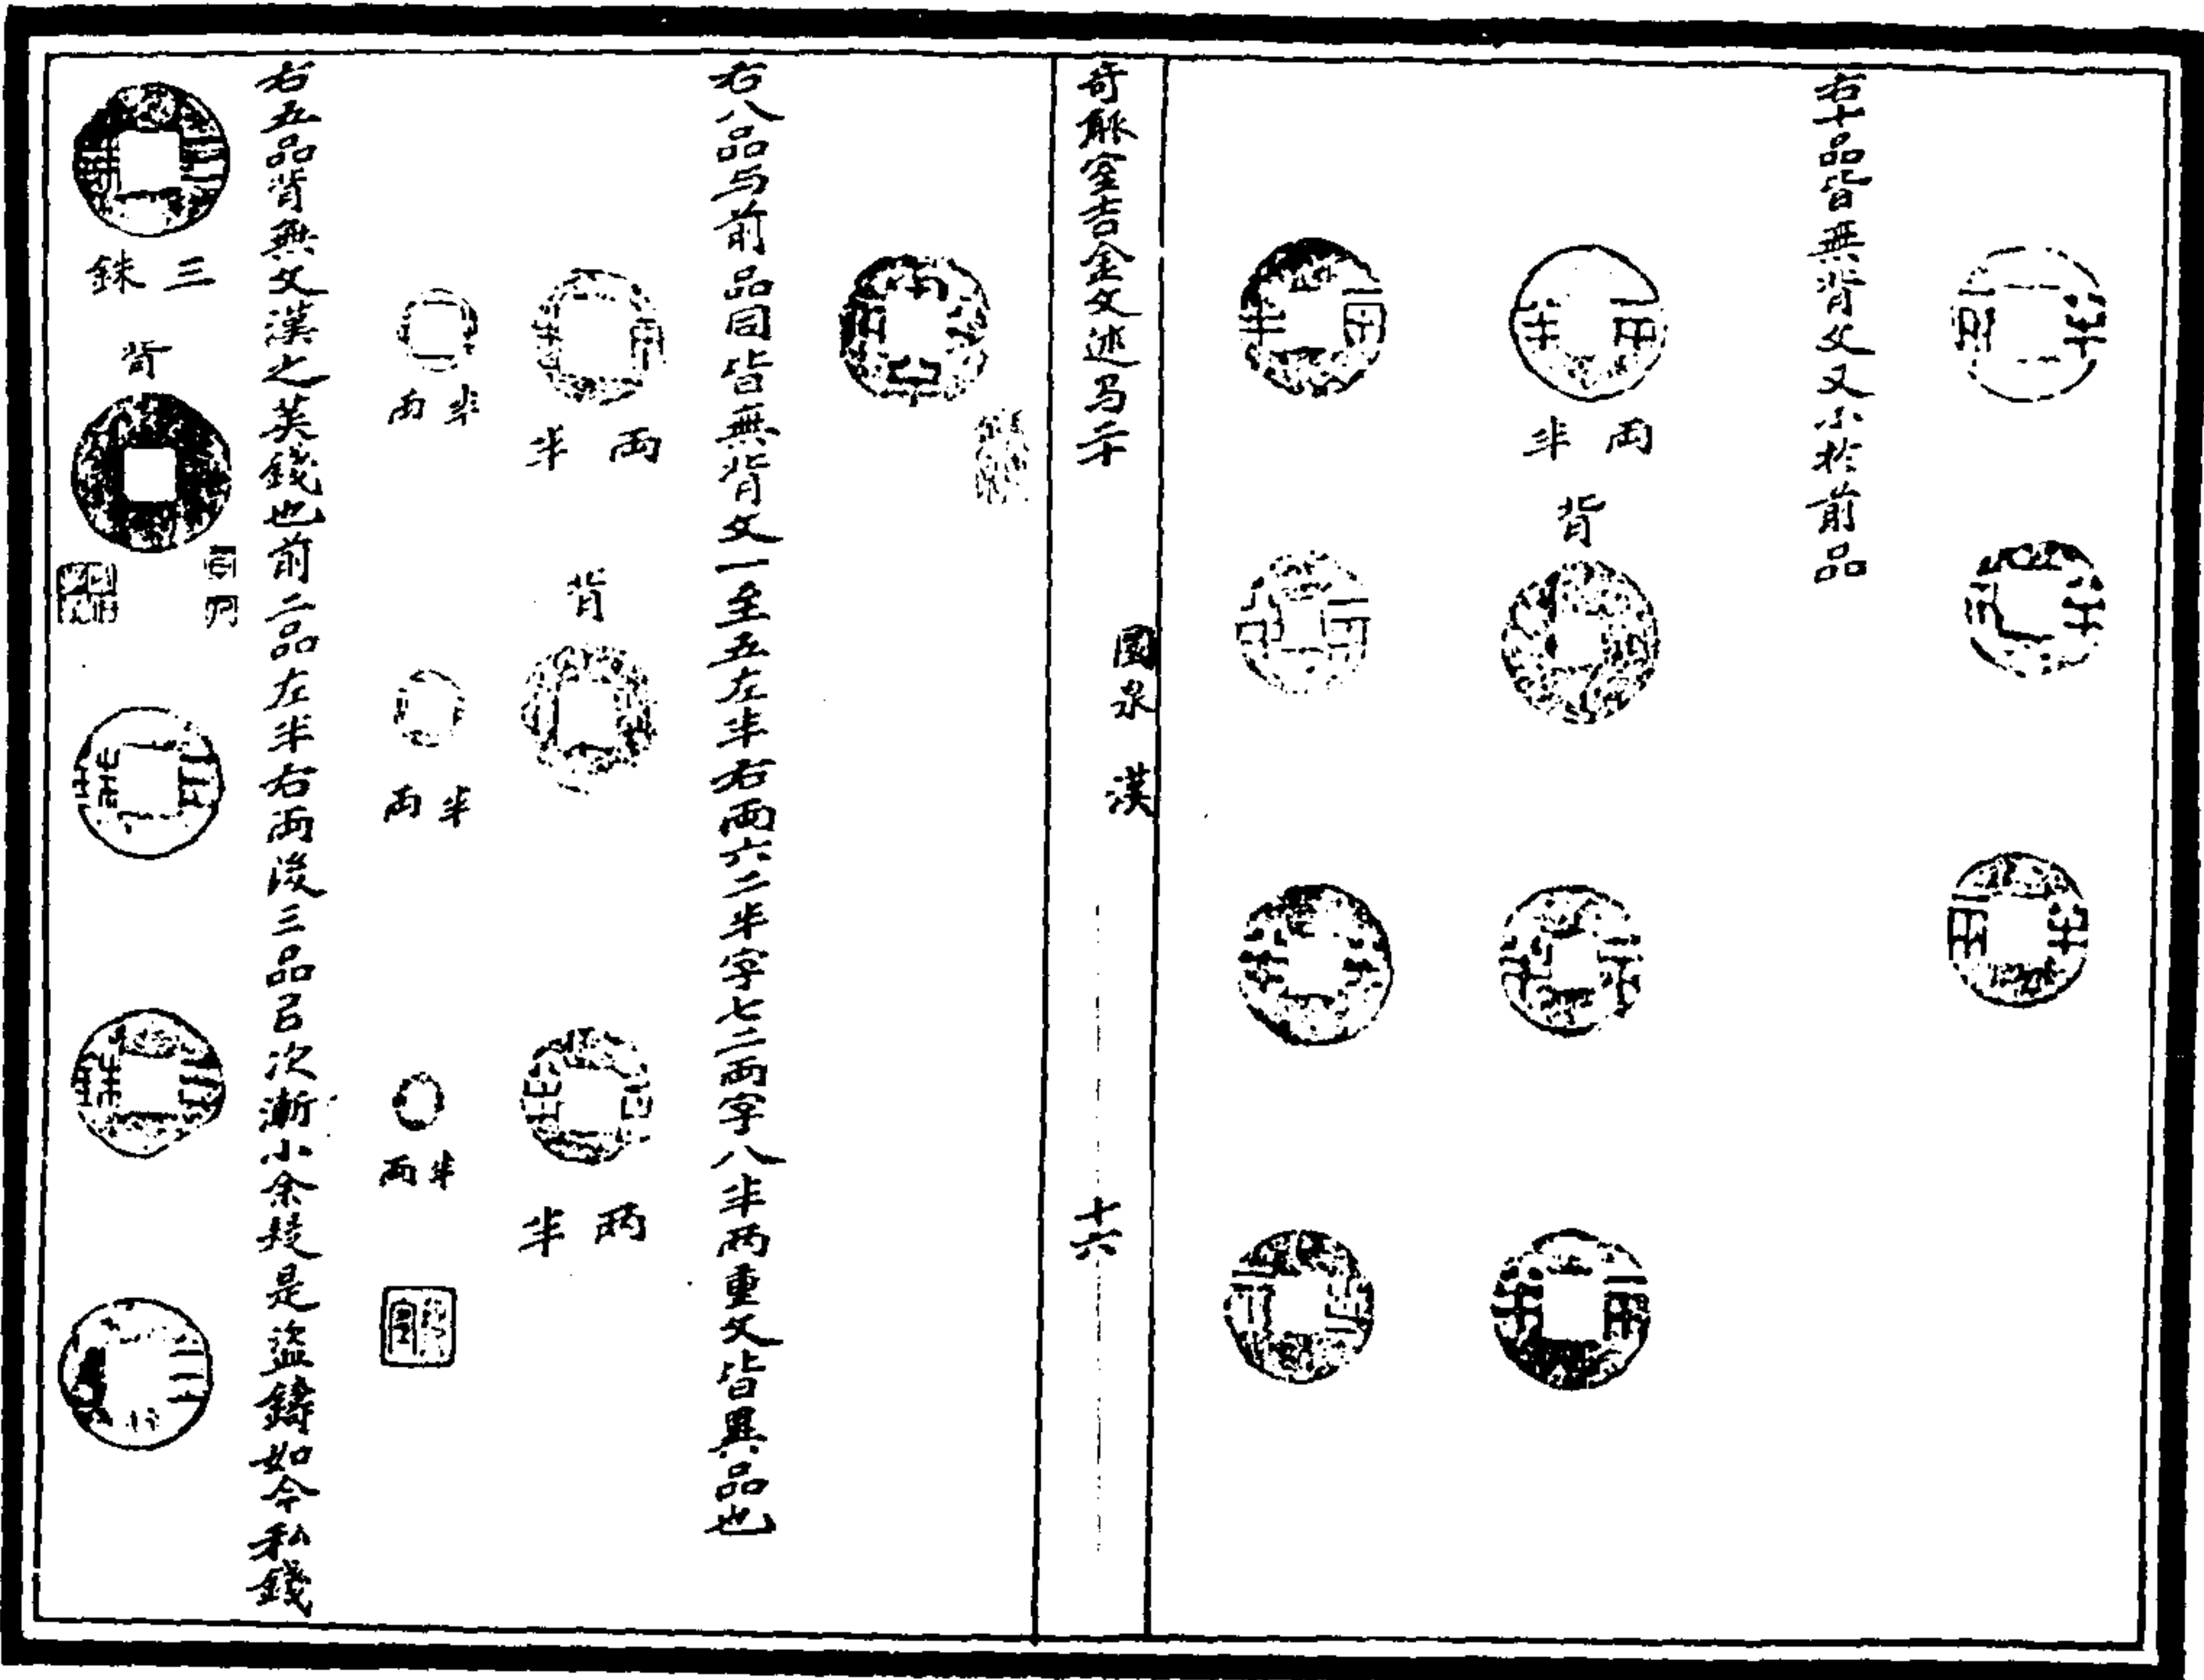 右十品皆無背文又小於前品
兩 半
背
奇觚室吉金文述弓二十
圜泉 漢
十六
右八品与前品同皆無背文一至五左半右兩六二半字七二兩字八半兩重文皆異品也
兩 半
背
兩 半
半 兩
半 兩
半 兩
右五品背無文漢之莢錢也前二品左半右兩後三品㠯次漸小余疑是盜鑄如今私錢
三 銖
背